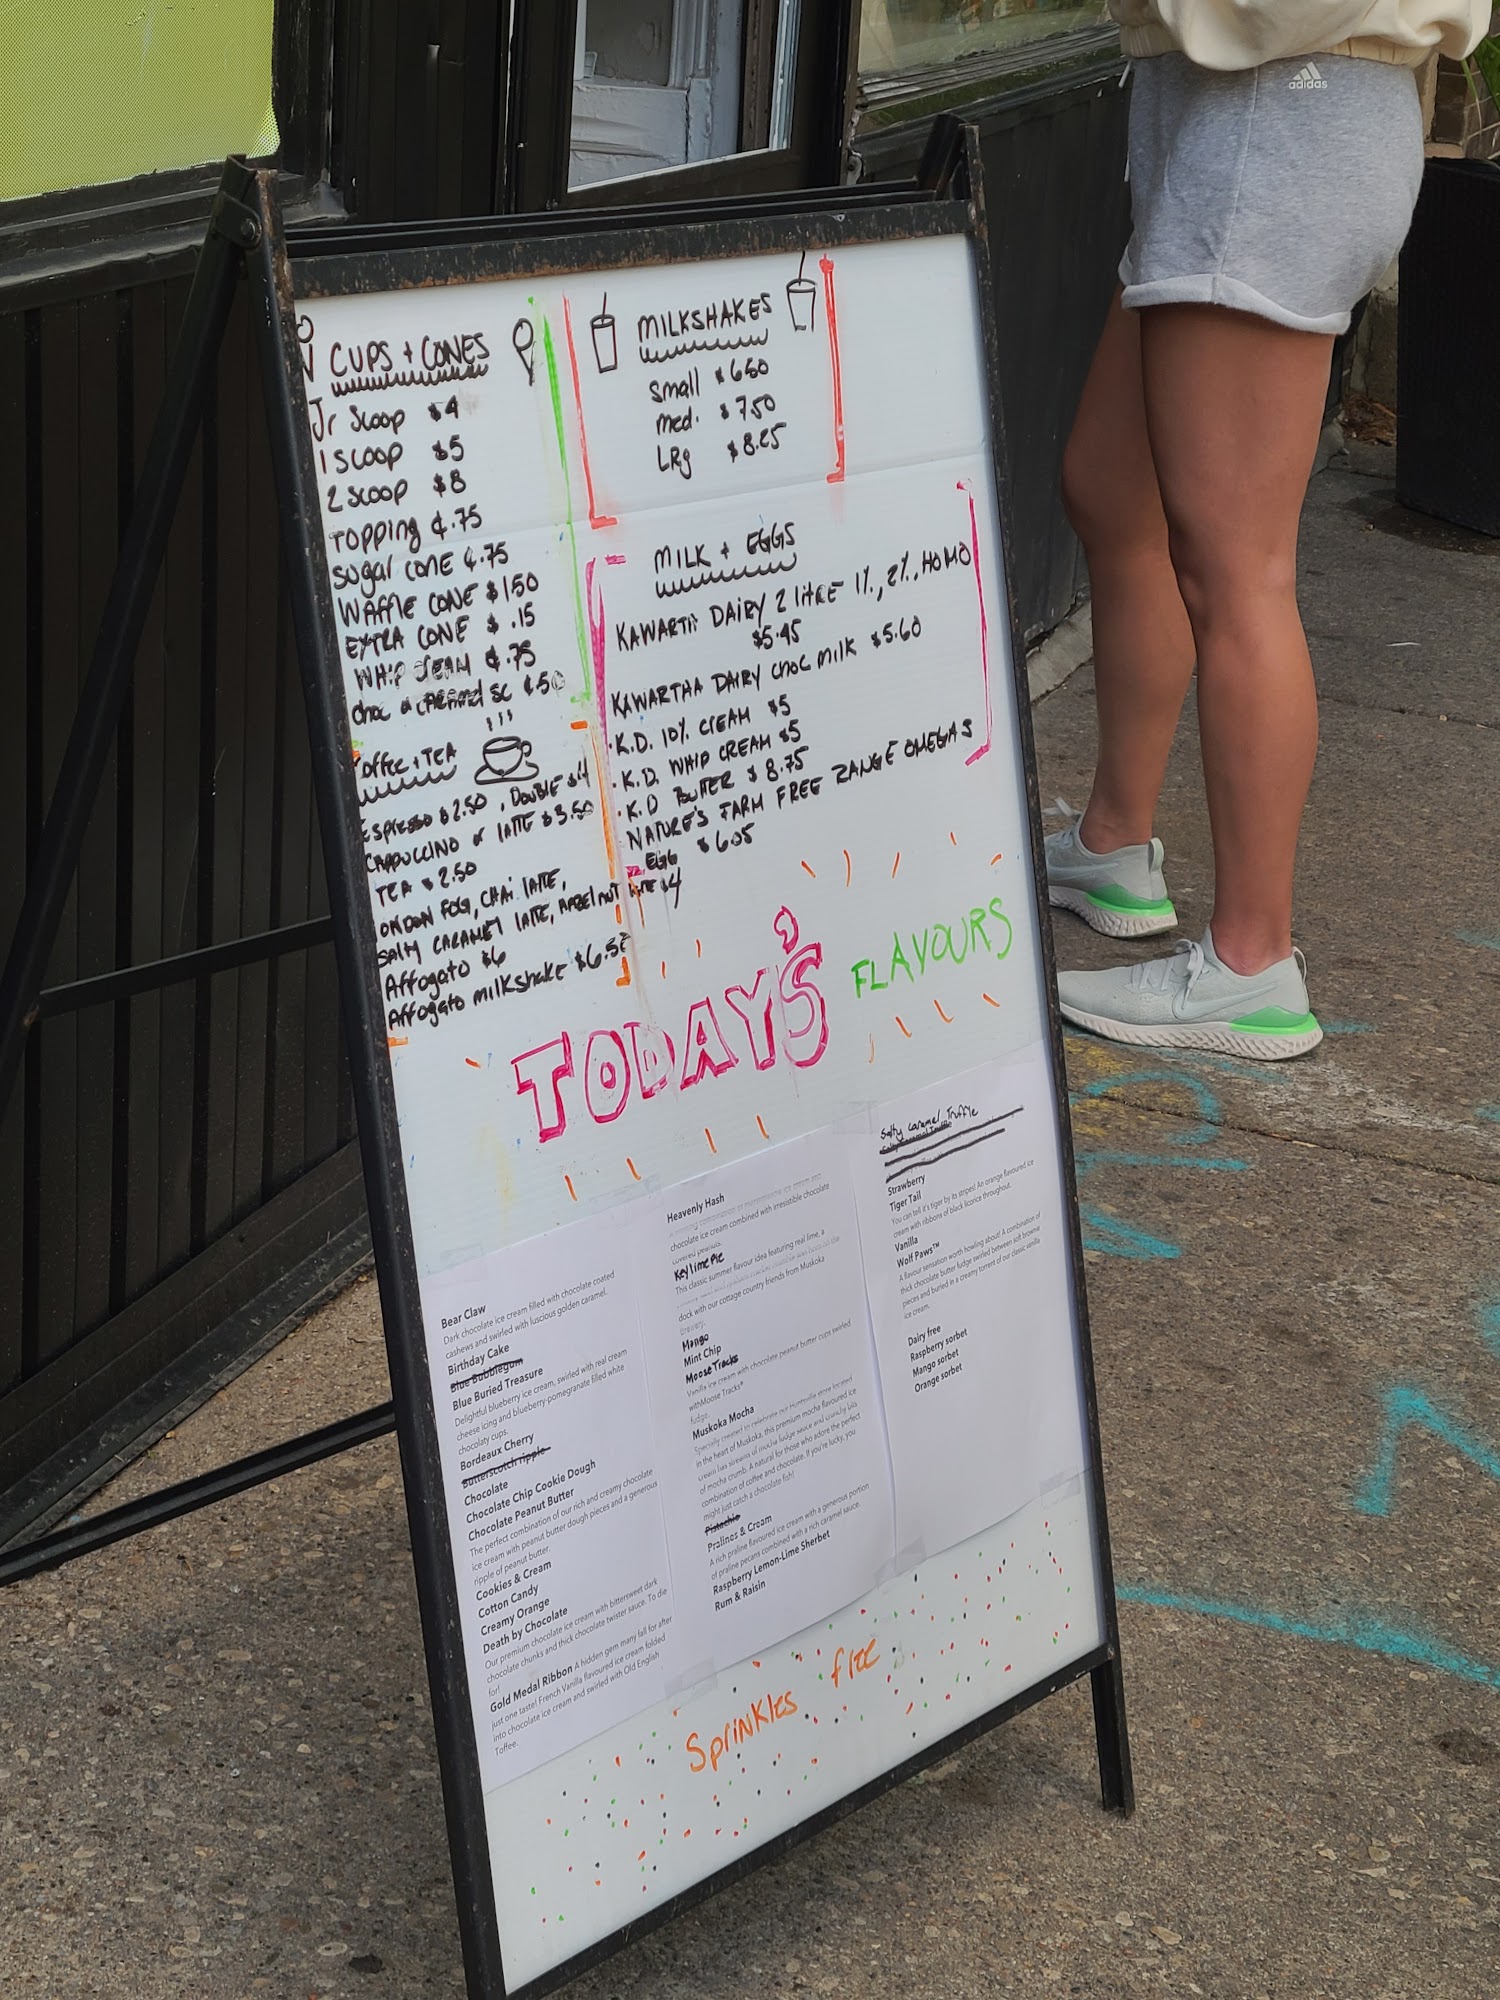 adidas
CUPS + CONES
Jr Scoop $4
1 SCOOP $5
2 SCOOP $8
TOPPING ¢.75
SUGAR CONE ¢.75
WAFFLE CONE $1.50
EXTRA CONE $.15
WHIP CREAM ¢.75
choc or caramel sc ¢.50
MILKSHAKES
small $6.50
med. $7.50
LRg $8.25
MILK + EGGS
KAWARTH DAIRY 2 LITRE 1%, 2%, HOMO
$5.45
KAWARTHA DAIRY CHOC MILK $5.60
K.D. 10% CREAM $5
K.D. WHIP CREAM $5
K.D BUTTER $8.75
NATURE'S FARM FREE RANGE OMEGA 3
EGG $6.05
offee + TEA
Espresso $2.50, DOUBLE $4
CAPPUCCINO or LATTE $3.50
TEA $2.50
ONDON FOG, CHAI LATTE,
SALTY CARAMEL LATTE, HAZELNUT LATTE $4
Affogato $6
Affogato milkshake $6.50
TODAY'S FLAVOURS
Bear Claw
Dark chocolate ice cream filled with chocolate coated
cashews and swirled with luscious golden caramel.
Birthday Cake
Blue Bubblegum
Blue Buried Treasure
Delightful blueberry ice cream, swirled with real cream
cheese icing and blueberry-pomegranate filled white
chocolaty cups.
Bordeaux Cherry
Butterscotch ripple
Chocolate
Chocolate Chip Cookie Dough
Chocolate Peanut Butter
The perfect combination of our rich and creamy chocolate
ice cream with peanut butter dough pieces and a generous
ripple of peanut butter.
Cookies & Cream
Cotton Candy
Creamy Orange
Death by Chocolate
Our premium chocolate ice cream with bittersweet dark
chocolate chunks and thick chocolate twister sauce. To die
for!
Gold Medal Ribbon A hidden gem many fall for after
just one taste! French Vanilla flavoured ice cream folded
into chocolate ice cream and swirled with Old English
Toffee.
Heavenly Hash
chocolate ice cream combined with irresistible chocolate
covered peanuts.
Key lime Pie
This classic summer flavour idea featuring real lime, a
dock with our cottage country friends from Muskoka
Brewery.
Mango
Mint Chip
Moose Tracks
Vanilla ice cream with chocolate peanut butter cups swirled
withMoose Tracks®
fudge.
Muskoka Mocha
Specially created to celebrate our Huntsville store located
in the heart of Muskoka, this premium mocha flavoured ice
cream has swirls of mocha fudge sauce and crunchy bits
of mocha crumb. A natural for those who adore the perfect
combination of coffee and chocolate. If you're lucky, you
might just catch a chocolate fish!
Pistachio
Pralines & Cream
A rich praline flavoured ice cream with a generous portion
of praline pecans combined with a rich caramel sauce.
Raspberry Lemon-Lime Sherbet
Rum & Raisin
Salty Caramel Truffle
Salty Caramel Truffle
Strawberry
Tiger Tail
You can tell it's tiger by its stripes! An orange flavoured ice
cream with ribbons of black licorice throughout.
Vanilla
Wolf Paws™
A flavour sensation worth howling about! A combination of
thick chocolate butter fudge swirled between soft brownie
pieces and buried in a creamy torrent of our classic vanilla
ice cream.
Dairy free
Raspberry sorbet
Mango sorbet
Orange sorbet
Sprinkles free